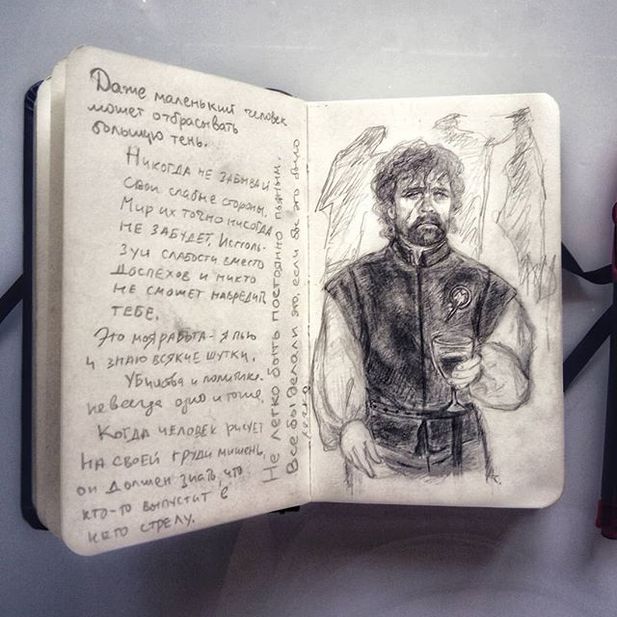 Даже маленький человек
может отбрасывать
большую тень.
Никогда не забывай
свои слабые стороны.
Мир их точно никогда
не забудет. Исполь-
зуй слабости вместо
доспехов и никто
не сможет навредить
тебе.
Это моя работа - я пью
и знаю всякие шутки.
Убийства и политика-
не всегда одно и тоже.
Когда человек рисует
на своей груди мишень,
он должен знать, что
кто-то выпустит в
него стрелу.
Не легко быть постоянно пьяным.
Все бы делали это, если бы это было
легко